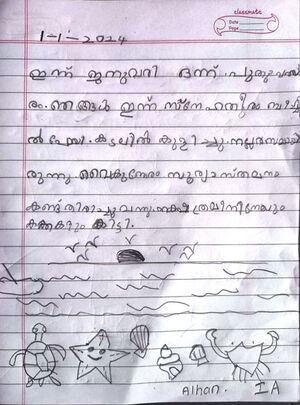 classmate
Date
Page
1-1-2024
ഇന്ന് ജനുവരി ഒന്ന്. പുതുവത്സ
രം. ഞങ്ങൾ ഇന്ന് സ്നേഹതീരം ബീച്ചി
ൽ പോയി. കടലിൽ കുളിച്ചു. നല്ലരസമായി
രുന്നു. വൈകുന്നേരം സൂര്യാസ്തമനം
കണ്ട് തിരിച്ചു വന്നു. നക്ഷത്രമീനിനേയും
കക്കകളും കിട്ടി.
Alhan. I A